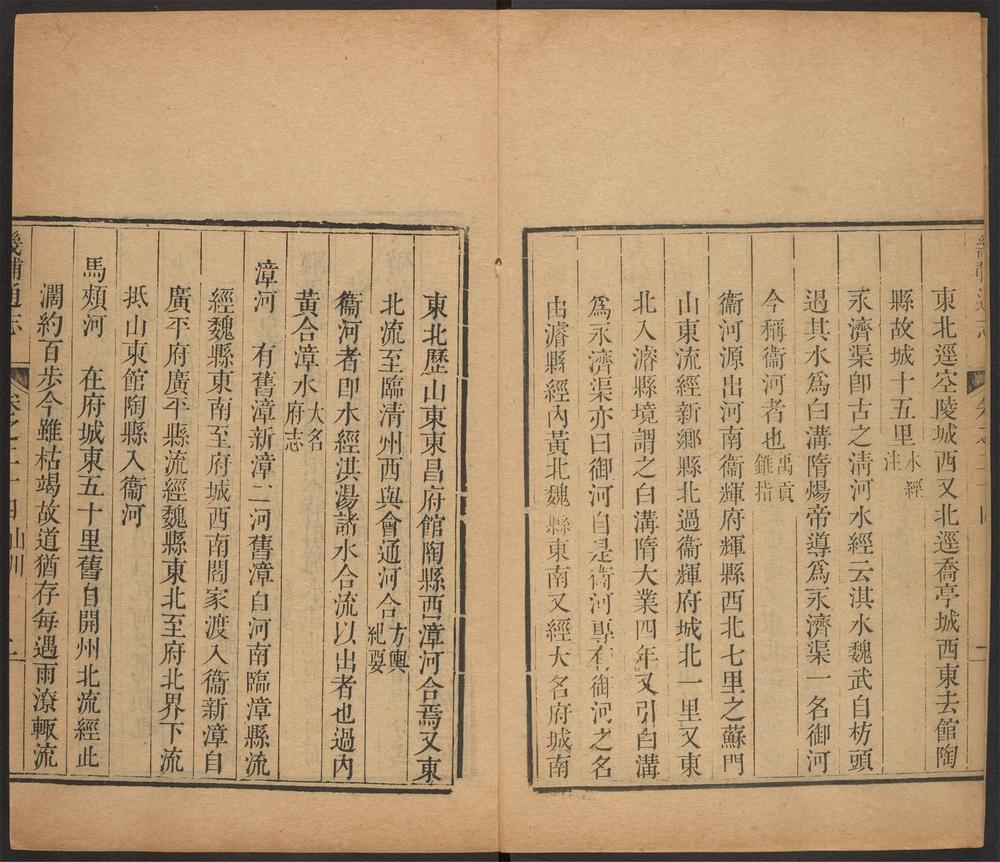 東北逕空陵城西又北逕喬亭城西東去館陶
縣故城十五里水經注
永濟渠卽古之淸河水經云淇水魏武自枋頭
遏其水爲白溝隋煬帝導爲永濟渠一名御河
今稱衞河者也禹貢錐指
衞河源出河南衞輝府輝縣西北七里之蘇門
山東流經新鄉縣北過衞輝府城北一里又東
北入濬縣境謂之白溝隋大業四年又引白溝
爲永濟渠亦曰御河自是衞河專有御河之名
由濬縣經內黃北魏縣東南又經大名府城南
東北歷山東東昌府館陶縣西漳河合焉又東
北流至臨清州西與會通河合方輿紀要
衞河者卽水經淇湯諸水合流以出者也過內
黃合漳水大名府志
漳河 有舊漳新漳二河舊漳自河南臨漳縣流
經魏縣東南至府城西南閻家渡入衞新漳自
廣平府廣平縣流經魏縣東北至府北界下流
抵山東館陶縣入衞河
馬頰河 在府城東五十里舊自開州北流經此
濶約百步今雖枯竭故道猶存每遇雨潦輙流
畿輔通志 卷之二十四 山川 二